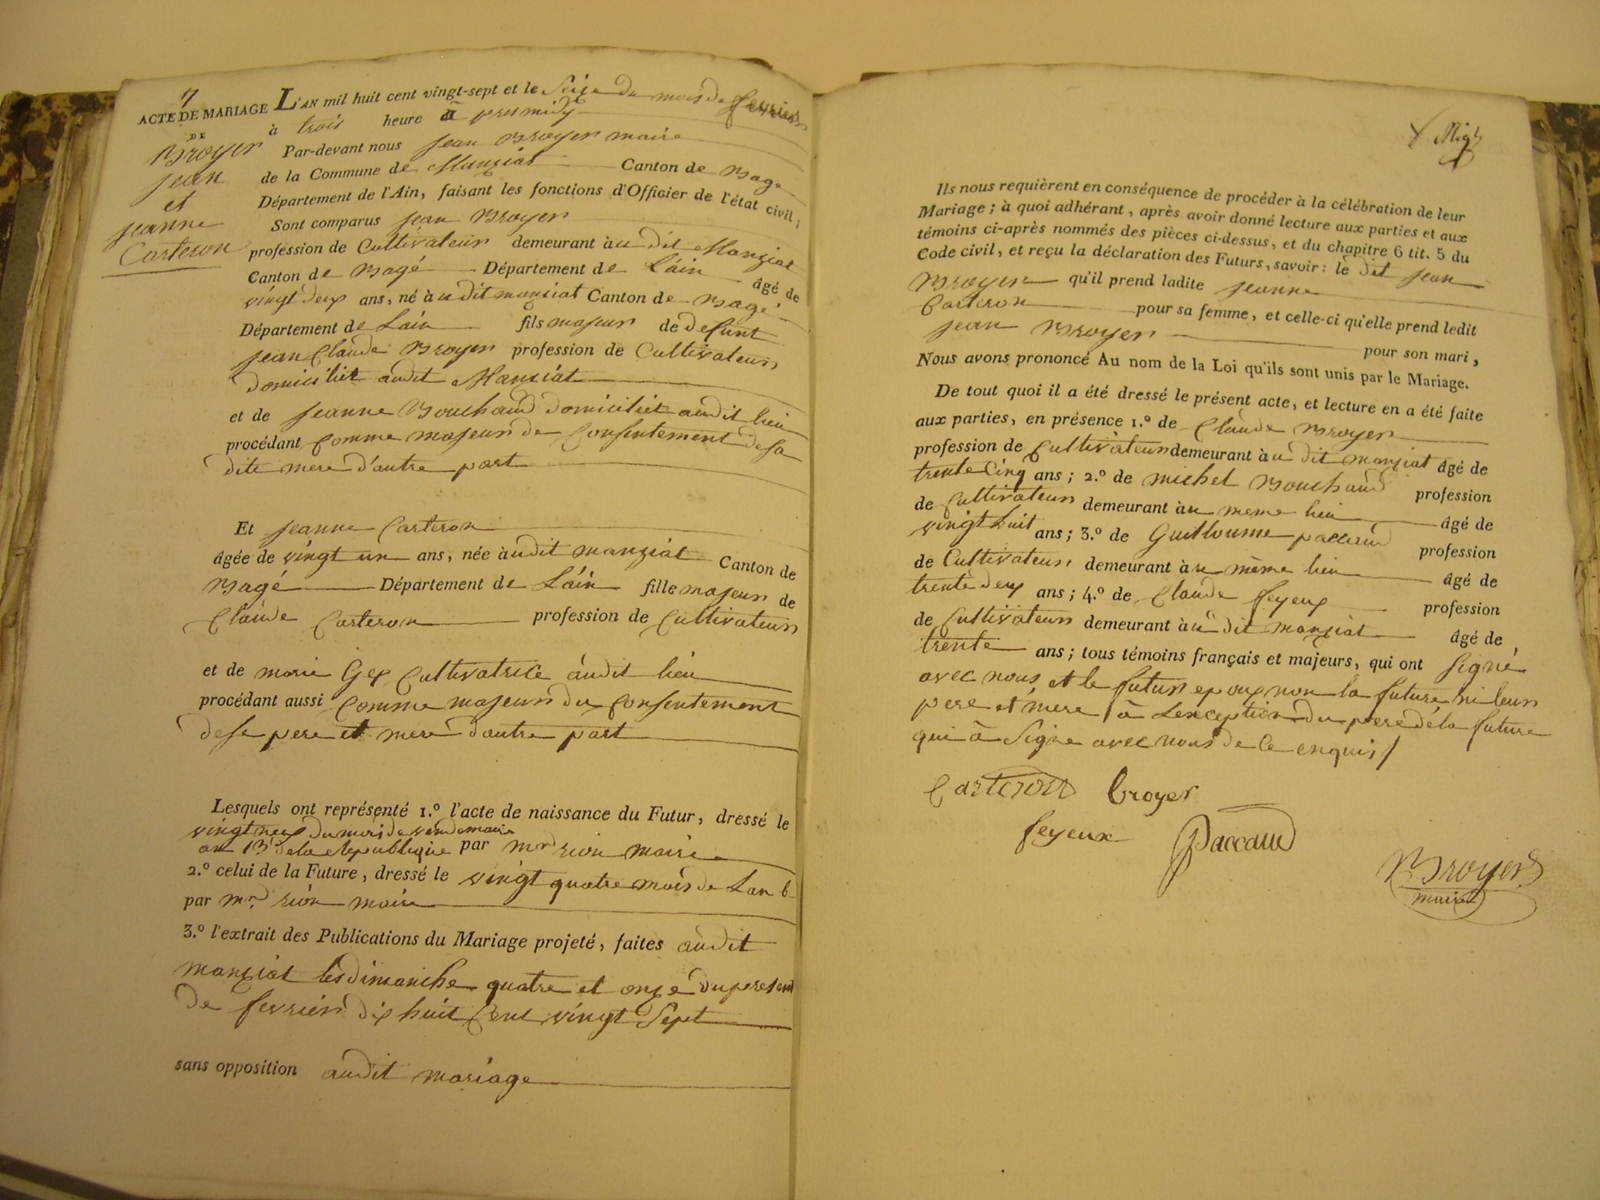 7
ACTE DE MARIAGE
DE
Broyer
jean
et
jeanne
Carteron
L'AN mil huit cent vingt-sept et le Seize du mois de fevrier
à trois heure d apres midy
Par-devant nous jean Broyer maire
de la Commune de Manziat Canton de Bage
Département de l'Ain, faisant les fonctions d'Officier de l'état civil;
Sont comparus jean Broyer
profession de Cultivateur demeurant àu dit Manziat
Canton de Bagé Département de L'ain âgé de
vingt deux ans, né àu dit manziat Canton de Bagé
Département de Lain fils majeur de defunt
jean Claude Broyer profession de Cultivateur
domiciliet audit Manziat
et de jeanne Bouchaud domiciliet audit lieu
procédant Comme majeur du Consentement de sa
dite mere d'autre part
Et jeanne Carteron
âgée de vingt un ans, née àudit manziat Canton de
Bagé Département de L'ain fille majeur de
Claude Carteron profession de Cultivateur
et de marie Gex Cultivatrice audit lieu
procédant aussi Comme majeur du Consentement
de se pere et mere d'autre part
Lesquels ont représenté 1.º l'acte de naissance du Futur, dressé le
vingt neuf du mois de vendemaire
an 13 de la Republique par mr rion maire
2.º celui de la Future, dressé le vingt quatre mois de Lan 6
par mr. rion maire
3.º l'extrait des Publications du Mariage projeté, faites audit
manziat les dimanche quatre et onze du present
de fevrier dix huit Cent vingt Sept
sans opposition audit mariage
Ils nous requièrent en conséquence de procéder à la célébration de leur
Mariage; à quoi adhérant, après avoir donné lecture aux parties et aux
témoins ci-après nommés des pièces ci-dessus, et du chapitre 6 tit. 5 du
Code civil, et reçu la déclaration des Futurs, savoir: le dit jean
Broyer qu'il prend ladite jeanne
Carteron pour sa femme, et celle-ci qu'elle prend ledit
jean Broyer pour son mari,
Nous avons prononcé Au nom de la Loi qu'ils sont unis par le Mariage.
De tout quoi il a été dressé le présent acte, et lecture en a été faite
aux parties, en présence 1.º de Claude Broyer
profession de Cultivateur demeurant àu dit manziat âgé de
trente Cinq ans; 2.º de michel Bouchaud profession
de Cultivateur demeurant àu meme lieu âgé de
vingt huit ans; 3.º de Guilloume paccaud profession
de Cultivateur demeurant àu mème lieu âgé de
trente deux ans; 4.º de Claude feyeux profession
de Cultivateur demeurant àu dit manziat âgé de
trente ans; tous témoins français et majeurs, qui ont Signé
avec nous et le futur epoux non la future ni leur
pere et mere à Lexception du pere de la future
qui à Signe avec nous de Ce enquis /
Carteron broyer
feyeux Paccaud
Broyer
maire